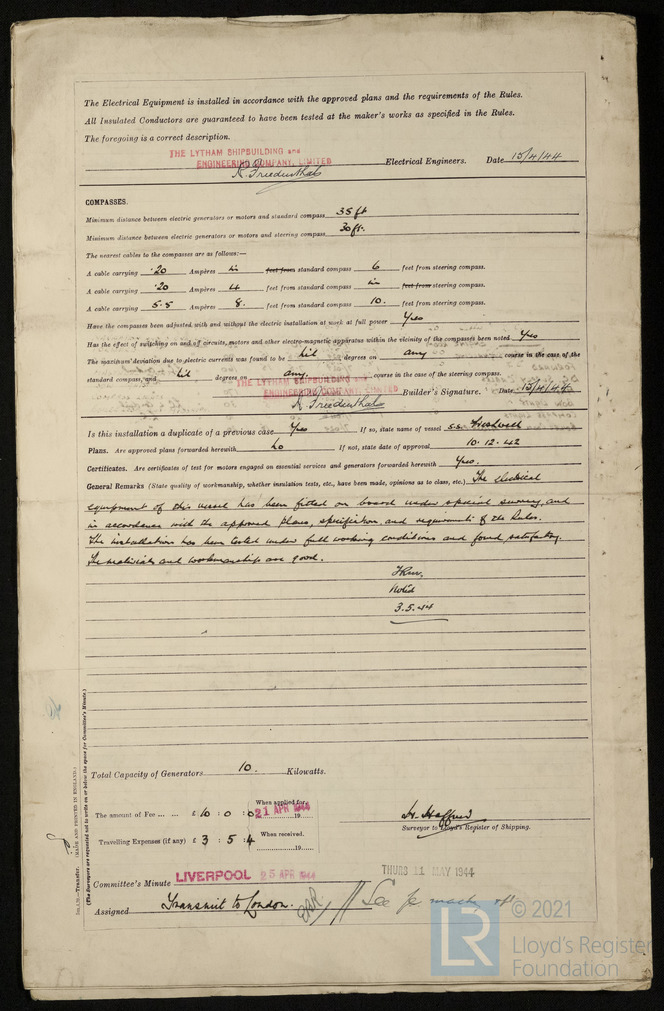 The Electrical Equipment is installed in accordance with the approved plans and the requirements of the Rules.
All Insulated Conductors are guaranteed to have been tested at the maker's works as specified in the Rules.
The foregoing is a correct description.
THE LYTHAM SHIPBUILDING and
ENGINEERING COMPANY, LIMITED Electrical Engineers. Date 15/4/44
COMPASSES.
Minimum distance between electric generators or motors and standard compass 35 ft
Minimum distance between electric generators or motors and steering compass 30 ft.
The nearest cables to the compasses are as follows:—
A cable carrying .20 Ampères in feet from standard compass 6 feet from steering compass.
A cable carrying .20 Ampères 4 feet from standard compass in feet from steering compass.
A cable carrying 5.5 Ampères 8. feet from standard compass 10. feet from steering compass.
Have the compasses been adjusted with and without the electric installation at work at full power Yes
Has the effect of switching on and off circuits, motors and other electro-magnetic apparatus within the vicinity of the compasses been noted Yes
The maximum deviation due to electric currents was found to be Nil degrees on any course in the case of the
standard compass, and Nil degrees on any. course in the case of the steering compass.
THE LYTHAM SHIPBUILDING and
ENGINEERING COMPANY, LIMITED Builder's Signature. Date 15/4/44
Is this installation a duplicate of a previous case Yes If so, state name of vessel s.s.
Plans. Are approved plans forwarded herewith No If not, state date of approval 10.12.42
Certificates. Are certificates of test for motors engaged on essential services and generators forwarded herewith Yes.
General Remarks (State quality of workmanship, whether insulation tests, etc., have been made, opinions as to class, etc.) The electrical
equipment of this vessel has been fitted on board under special survey, and
in accordance with the approved plans, specification, and requirements of the Rules.
The installation has been tested under full working conditions and found satisfactory.
The materials and workmanship are good.
Noted
3.5.44
Total Capacity of Generators 10. Kilowatts.
The amount of Fee ... ... £ 10 : 0 : 0 When applied for, 21 APR 1944 19
Travelling Expenses (if any) £ 3 : 5 : 4 When received. 19
Surveyor to Lloyd's Register of Shipping.
Committee's Minute LIVERPOOL 25 APR 1944 THURS 11 MAY 1944
Assigned Transmit to London. See
(MADE AND PRINTED IN ENGLAND.)
(The Surveyors are requested not to write on or below the space for Committee's Minute.)
© 2021
LR Lloyd's Register
Foundation